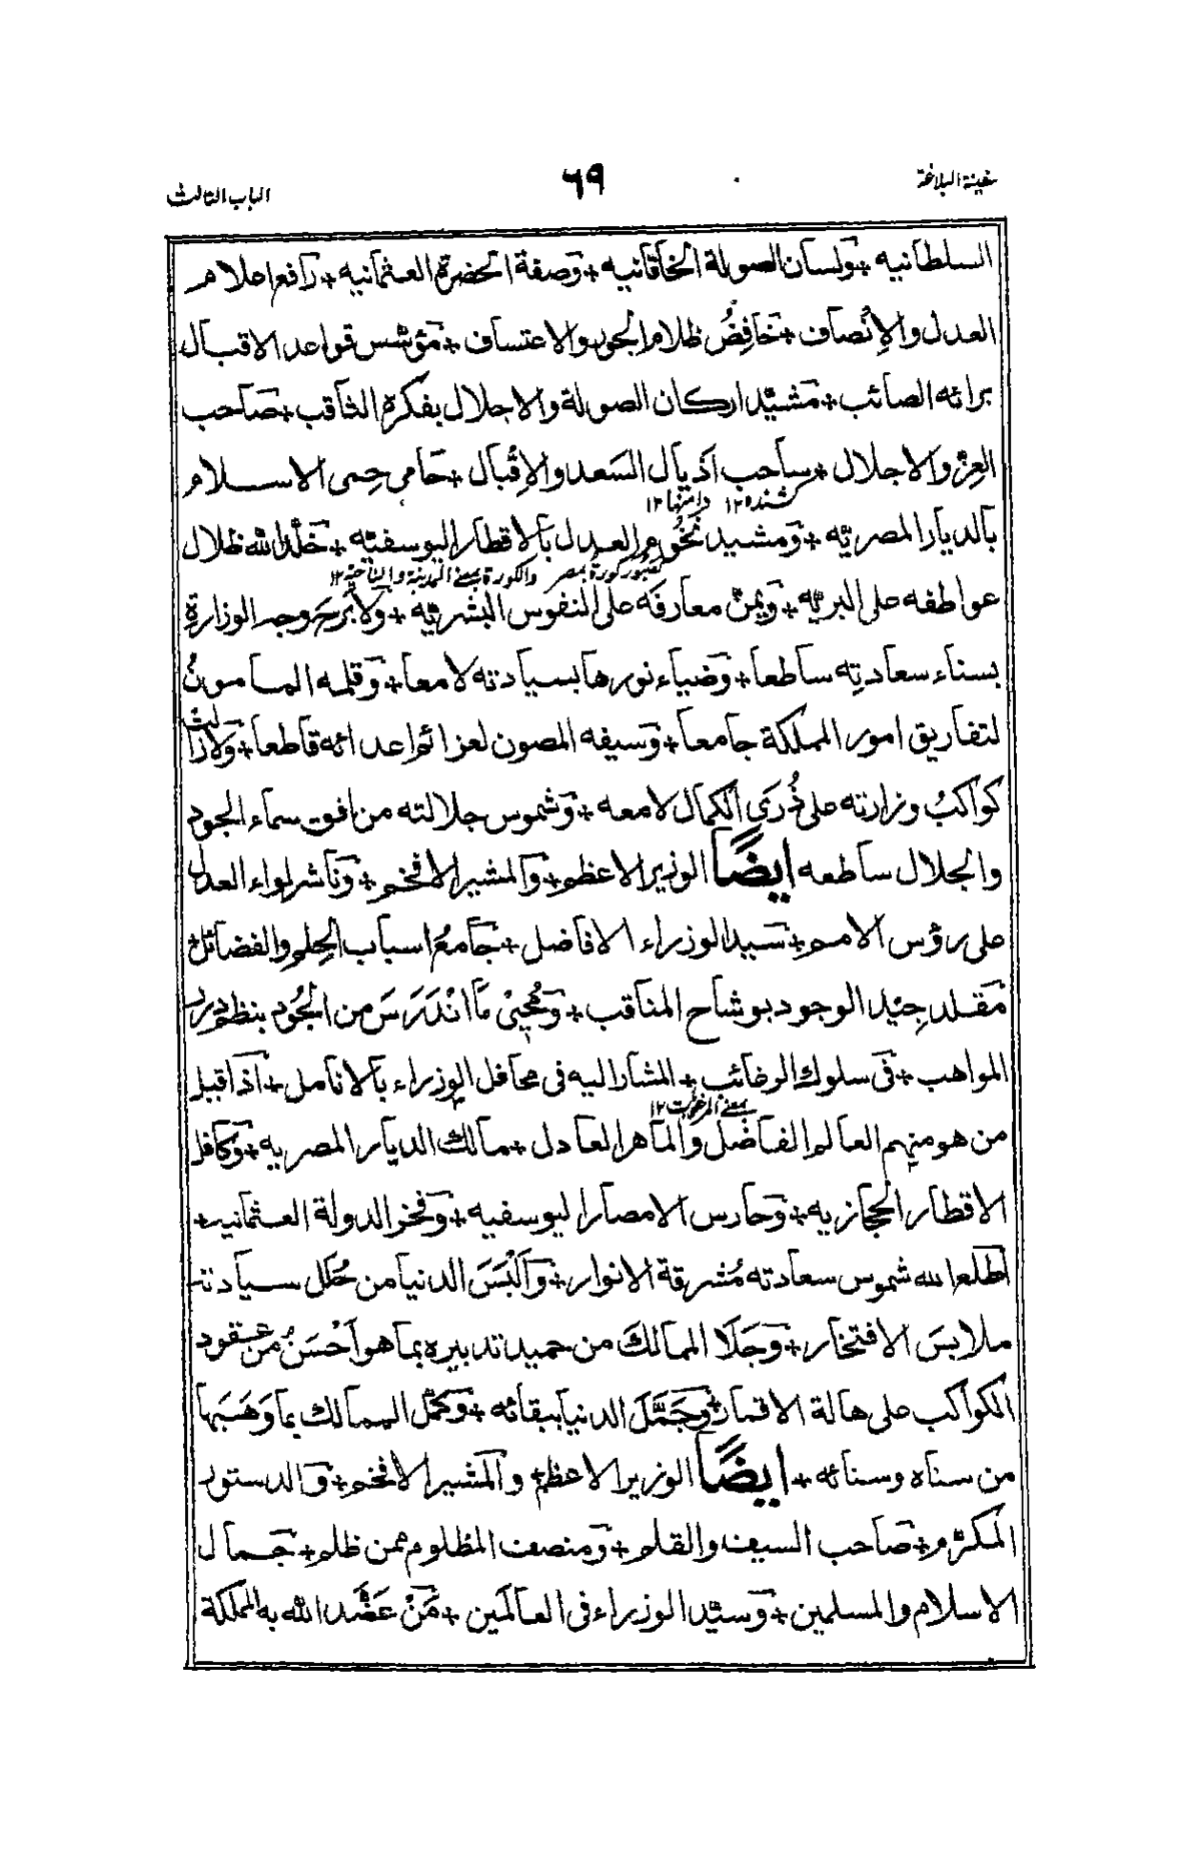 سفينة البلاغة
٦٩
الباب الثالث
السلطانيه + ولسان الصولة الخاقانيه + وصفة الحضرة العثمانيه + رافع اعلام
العدل والإنصاف + خافِضُ ظلام الجور والاعتساف + مؤسس قواعد الاقبال
برائه الصائب + مشيّد اركان الصولة والاجلال بفكره الثاقب + صاحب
العِزّ والاجلال + ساحب اذيال السَعد والإقبال + حامي حِمى الاسلام
كشنده ١٢ دامنها ١٢
بالديار المصريّه + ومشيد نحُوم العدل بالاقطار اليوسفيّه + خلّد الله ظلال
كصبور كورة بمصر والكورة بمعنى المدينة والناحية ١٢
عواطفه على البريّه + ويمن معارفه على النفوس البشريّه + ولا برح وجه الوزارةِ
بسناء سعادتِه ساطعا + وضياء نورها بسيادته لامعا + وقلمه المامونُ
لتفاريق امور المملكة جامعا + وسيفه المصون لعزائم اعدائه قاطعا + ولا زالت
كواكبُ وزارته على ذُرَى الكمال لامعه + وشموس جلالته من افق سماء الجود
والجلال ساطعه ايضًا الوزير الاعظم + والمشير الافخم + وناشر لواء العدل
على رؤس الامم + سيد الوزراء الافاضل + جامعُ اسباب الحِلم والفضائل +
مقلد جِيْد الوجود بوشاح المناقب + ومُحيىْ ما انْدَرَسَ من الجُود بنظم درر
المواهب + فى سلوك الرغائب + المشار اليه فى محافل الوزراء بالانامل + اذا قيل
بمعنى المرغوبات ١٢
من هو منهم العالم الفاضل والماهر العادل + مالك الديار المصريه + وكافل
الاقطار الحجازيه + وحارس الامصار اليوسفيه + وفخر الدولة العثمانيه +
اطلع الله شموس سعادته مُشرقة الانوار + وَاَلْبَسَ الدنيا من حُلل سيادته
ملابسَ الافتخار + وجَلَا الممالكَ من حميد تدبيره بما هو اَحْسَنُ من عقود
الكواكب على هالة الاقمار + وجَمَّلَ الدنيا ببقائه + وكمّل الممالك بما وَهَبَها
من سناه وسنائه + ايضًا الوزير الاعظم والمشير الافخم + والدستور
المكرّم + صاحب السيف والقلم + ومنصف المظلوم ممن ظلم + جمال
الاسلام والمسلمين + وسيّد الوزراء فى العالَمين + مَنْ عَضَّد الله به المملكة